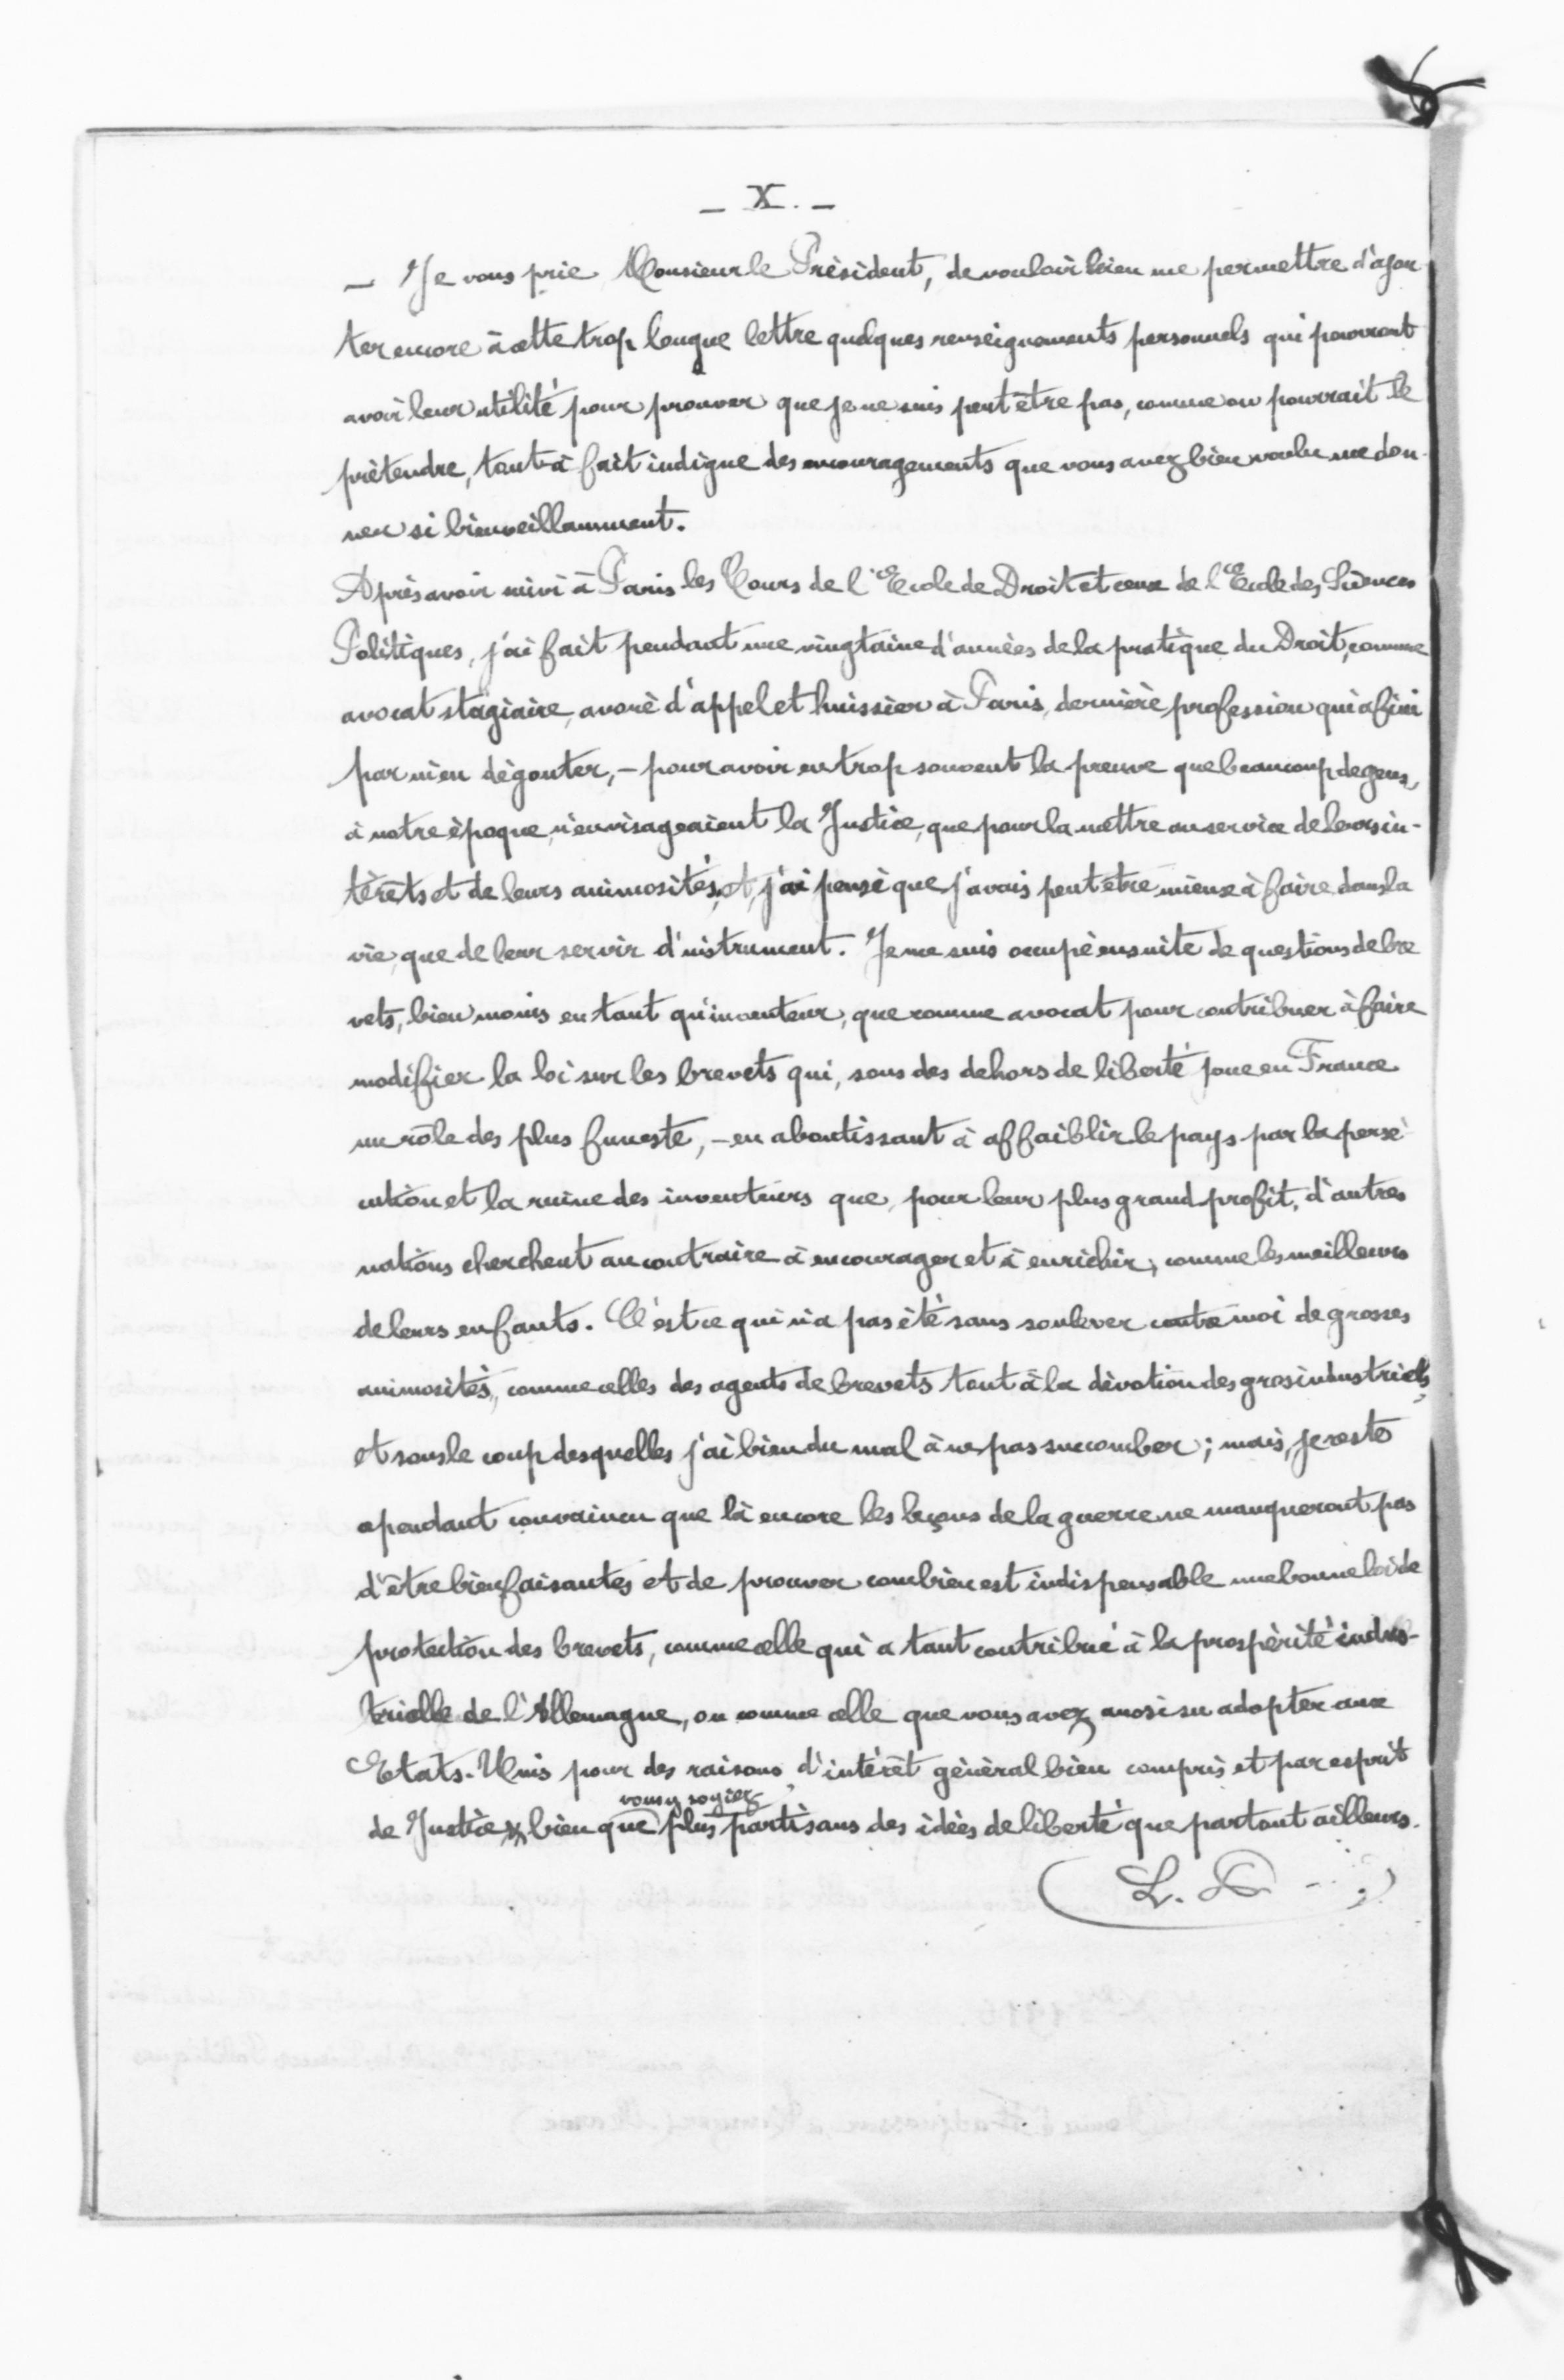 _ X. _
_ Je vous prie Monsieur le Président, de vouloir bien me permettre d'ajou
ter encore à cette trop longue lettre quelques renseignements personnels qui pourront
avoir leur utilité pour prouver que je ne suis peut être pas, comme on pourrait le
prètendre, tout à fait indigne des encouragements que vous avez bien voulu me don-
ner si bienveillamment.
Après avoir suivi à Paris les Cours de l'Ecole de Droit et ceux de l'Ecole des Sciences
Politiques, j'ai fait pendant une vingtaine d'années de la pratique du Droit, comme
avocat stagiaire, avoué d'appel et huissier à Paris, dernière profession qui a fini
par m'en dégouter, – pour avoir eu trop souvent la preuve que beaucoup de gens,
à notre époque, n'envisageaient la Justice, que pour la mettre au service de leurs in-
térêts et de leurs animosités, et, j'ai pensé que j'avais peut être mieux à faire dans la
vie, que de leur servir d'instrument. Je me suis occupé ensuite de questions de bre
vets, bien moins en tant qu'inventeur, que comme avocat pour contribuer à faire
modifier la loi sur les brevets qui, sous des dehors de liberté joue en France
un rôle des plus funeste, – en aboutissant à affaiblir le pays par la persé
cution et la ruine des inventeurs que, pour leur plus grand profit, d'autres
nations cherchent au contraire à encourager et à enrichir, comme les meilleurs
de leurs enfants. C'est ce qui n'a pas été sans soulever contre moi de grosses
animosités, comme celles des agents de brevets tout à la dévotion des gros industriels,
et sous le coup desquelles j'ai bien du mal à ne pas succomber; mais, je reste
cependant convaincu que là encore les leçons de la guerre ne manqueront pas
d'être bienfaisantes et de prouver combien est indispensable une bonne loi de
protection des brevets, comme celle qui a tant contribué à la prospérité indus-
trielle de l'Allemagne, ou comme celle que vous avez aussi su adopter aux
Etats-Unis pour des raisons d'intérêt général bien compris et par esprit
vous y soyiez
de Justice bien que plus partisans des idées de liberté que partout ailleurs.
L.